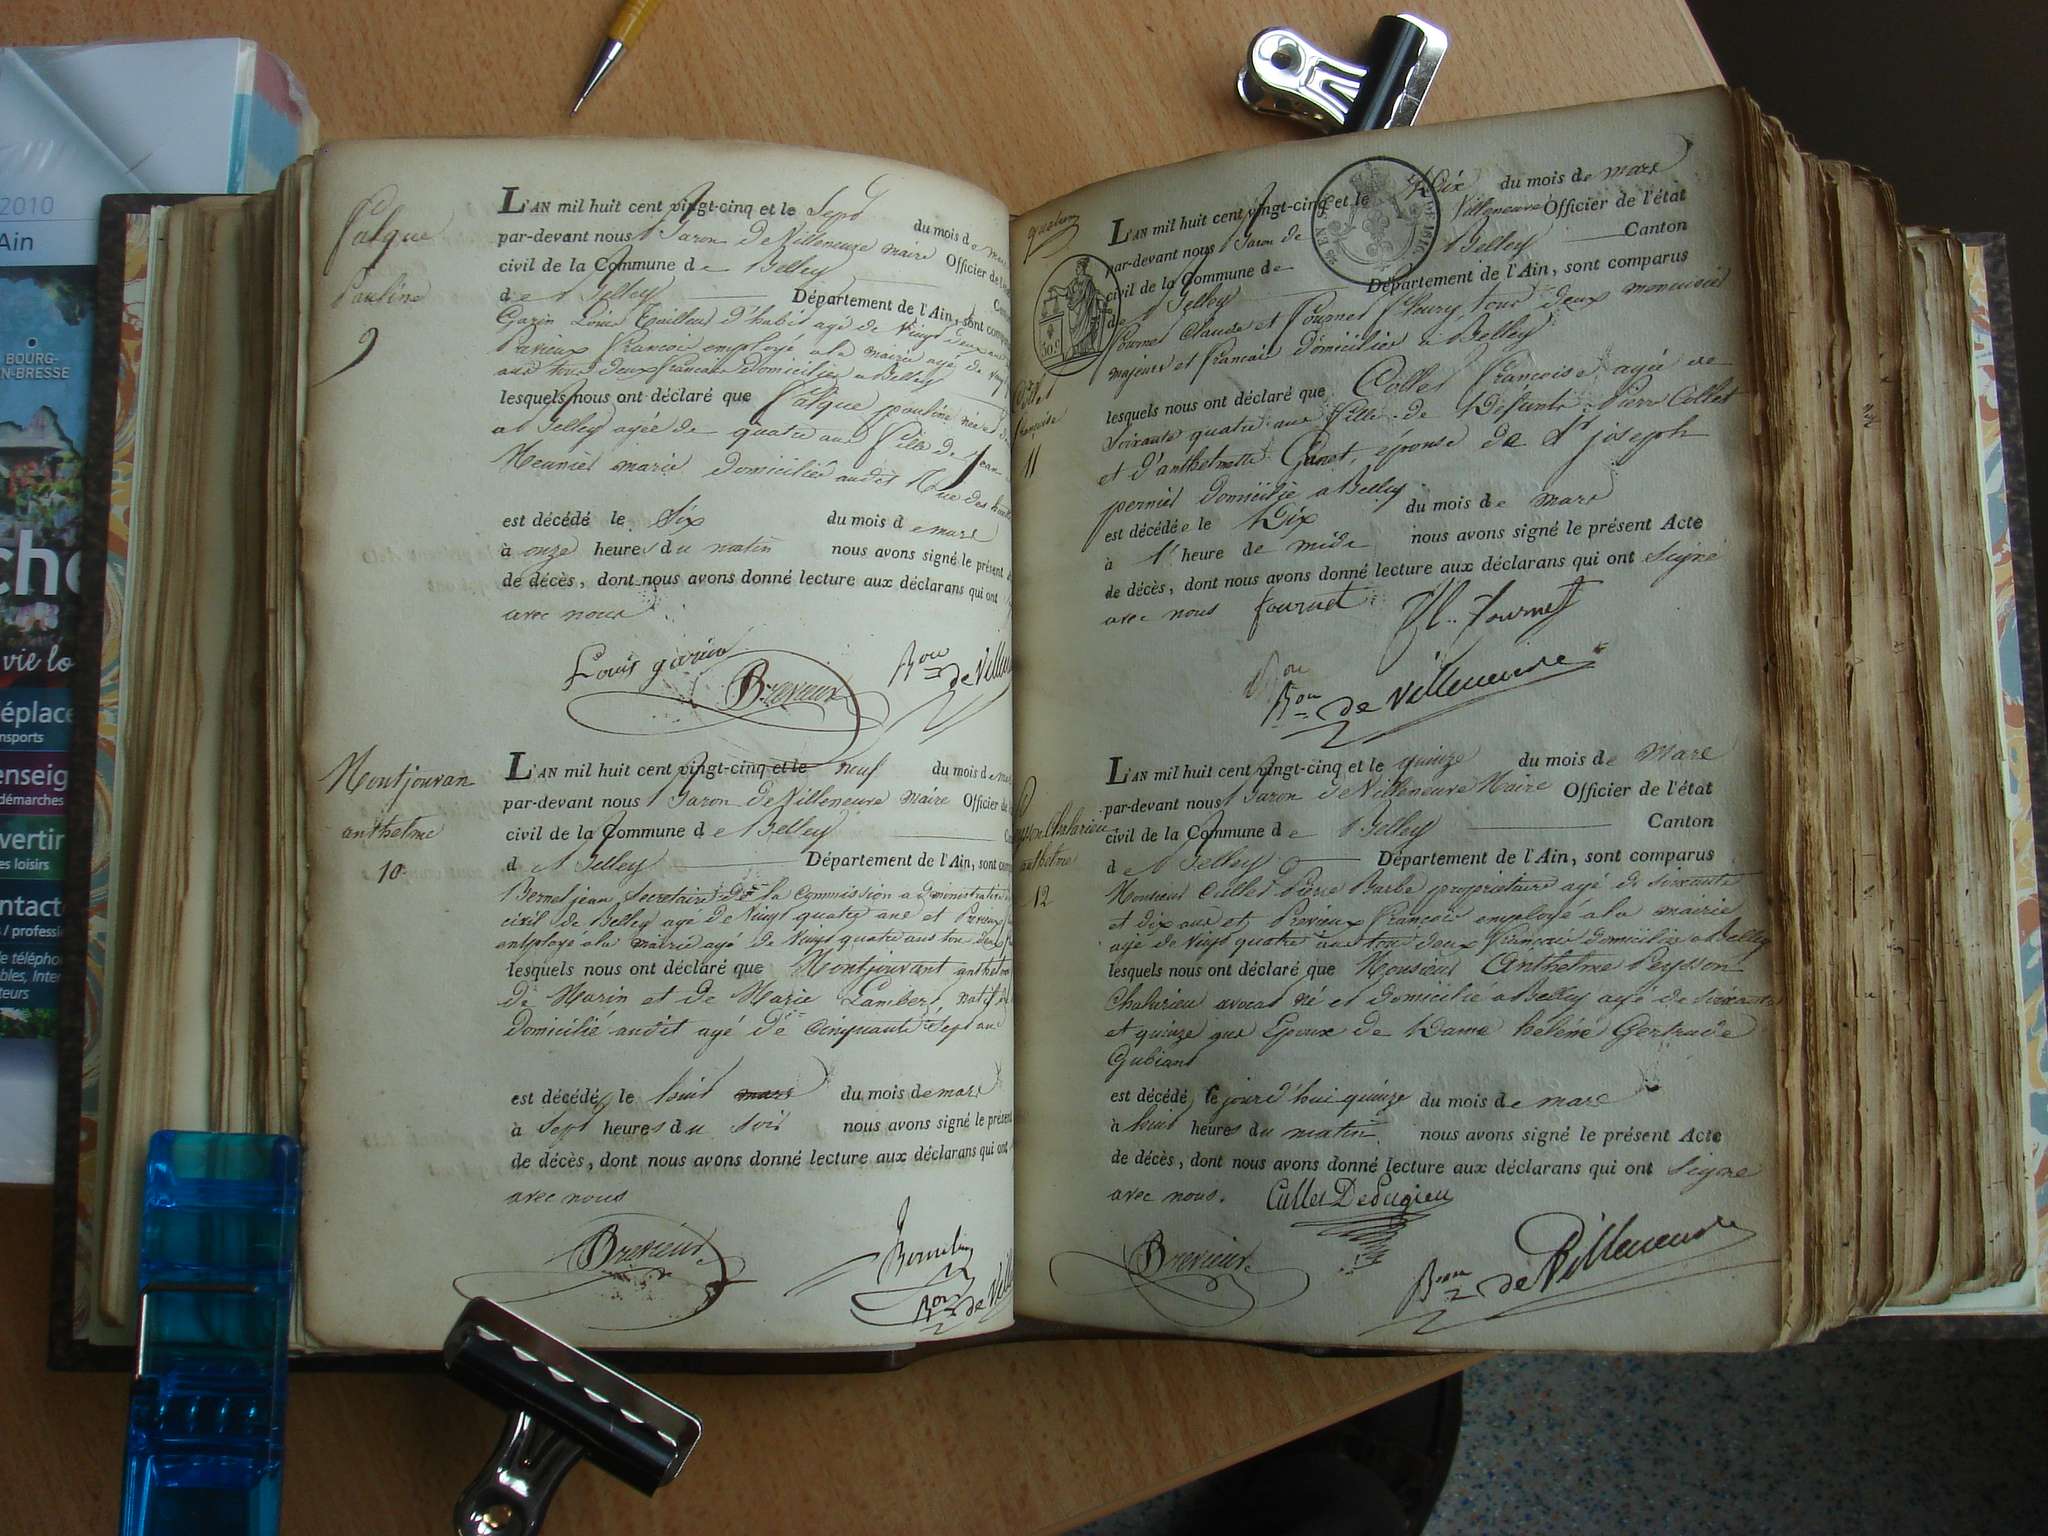 2010
Ain
BOURG-
N-BRESSE
che
vie lo
éplace
nsports
enseig
démarches
vertir
es loisirs
ntact
s / professi
e télépho
bles, Inter
teurs
falque
Pauline
9
L'AN mil huit cent vingt-cinq et le Sept du mois de mars
par-devant nous Baron de Villeneuve maire Officier de l'é
civil de la Commune de Belley
de Belley Département de l'Ain, sont comp
Garin Louis Tailleur d'habit agé de Vingt deux ans
Previeux francois employé a la mairie agé de Ving
ans tous deux francais Domiciliés a Belley
lesquels nous ont déclaré que falque pauline née et d
a Belley agée de quatre ans fille de Jean
Meunier marie domicilié audit Rue des
est décédé le Six du mois de mars
à onze heures du matin nous avons signé le présent
de décès, dont nous avons donné lecture aux déclarans qui ont
avec nous
Louis garin
Brevieux
Bon de Ville
Montjouvan
anthelme
10
L'AN mil huit cent vingt-cinq et le neuf du mois de mars
par-devant nous Baron de Villeneuve Maire Officier de
civil de la Commune de Belley
de Belley Département de l'Ain, sont com
Bernel jean Secretaire de la Commission administrative
civil de Belley agé de Vingt quatre ans et Previeux
employé a la mairie agé de Vingt quatre ans tou deux
lesquels nous ont déclaré que Montjouvant anthelme
de Marin et de Marie Lambert, natif
domicilié audit agé de Cinquante sept ans
est décédé le huit mars du mois de mars
à Sept heures du Soir nous avons signé le présent
de décès, dont nous avons donné lecture aux déclarans qui ont
avec nous
Brevieux
Bon de Ville
30.c
Collet
françoise
11
L'AN mil huit cent vingt-cinq et le Dix du mois de mars
par-devant nous Baron de Villeneuve Officier de l'état
civil de la Commune de Belley Canton
de Belley Département de l'Ain, sont comparus
Fournet Claude et Fournet fleury, tous deux menuisiers
majeurs et francais domiciliés a Belley
lesquels nous ont déclaré que Collet francoise, agée de
Soixante quatre ans fille de Défunts Pierre Collet
et d'anthelmette Ganet, épouse de Sr joseph
pernier domicilié a Belley
est décédée le Dix du mois de mars
à 1' heure de midi nous avons signé le présent Acte
de décès, dont nous avons donné lecture aux déclarans qui ont Signé
avec nous fournet fl. fournet
Bon
Bon de Villeneuve
Peysson Chalarieu
anthelme
12
L'AN mil huit cent vingt-cinq et le quinze du mois de Mars
par-devant nous Baron de Villeneuve Maire Officier de l'état
civil de la Commune de Belley Canton
de Belley Département de l'Ain, sont comparus
Monsieur Cullet Pierre Barbe proprietaire agé de soixante
et dix ans et Previeux francois employé a la mairie
agé de Vingt quatre ans tou deux francais domiciliés a Belley
lesquels nous ont déclaré que Monsieur Anthelme Peysson
Chalarieu avocat né et domicilié a Belley agé de soixante
et quinze ans Epoux de Dame heléne Gertrude
Gubiant
est décédé le jourd'hui quinze du mois de mars
à huit heures du matin nous avons signé le présent Acte
de décès, dont nous avons donné lecture aux déclarans qui ont Signé
avec nous. Cullet DeLugieu
Brevieux
Bon de Villeneuve